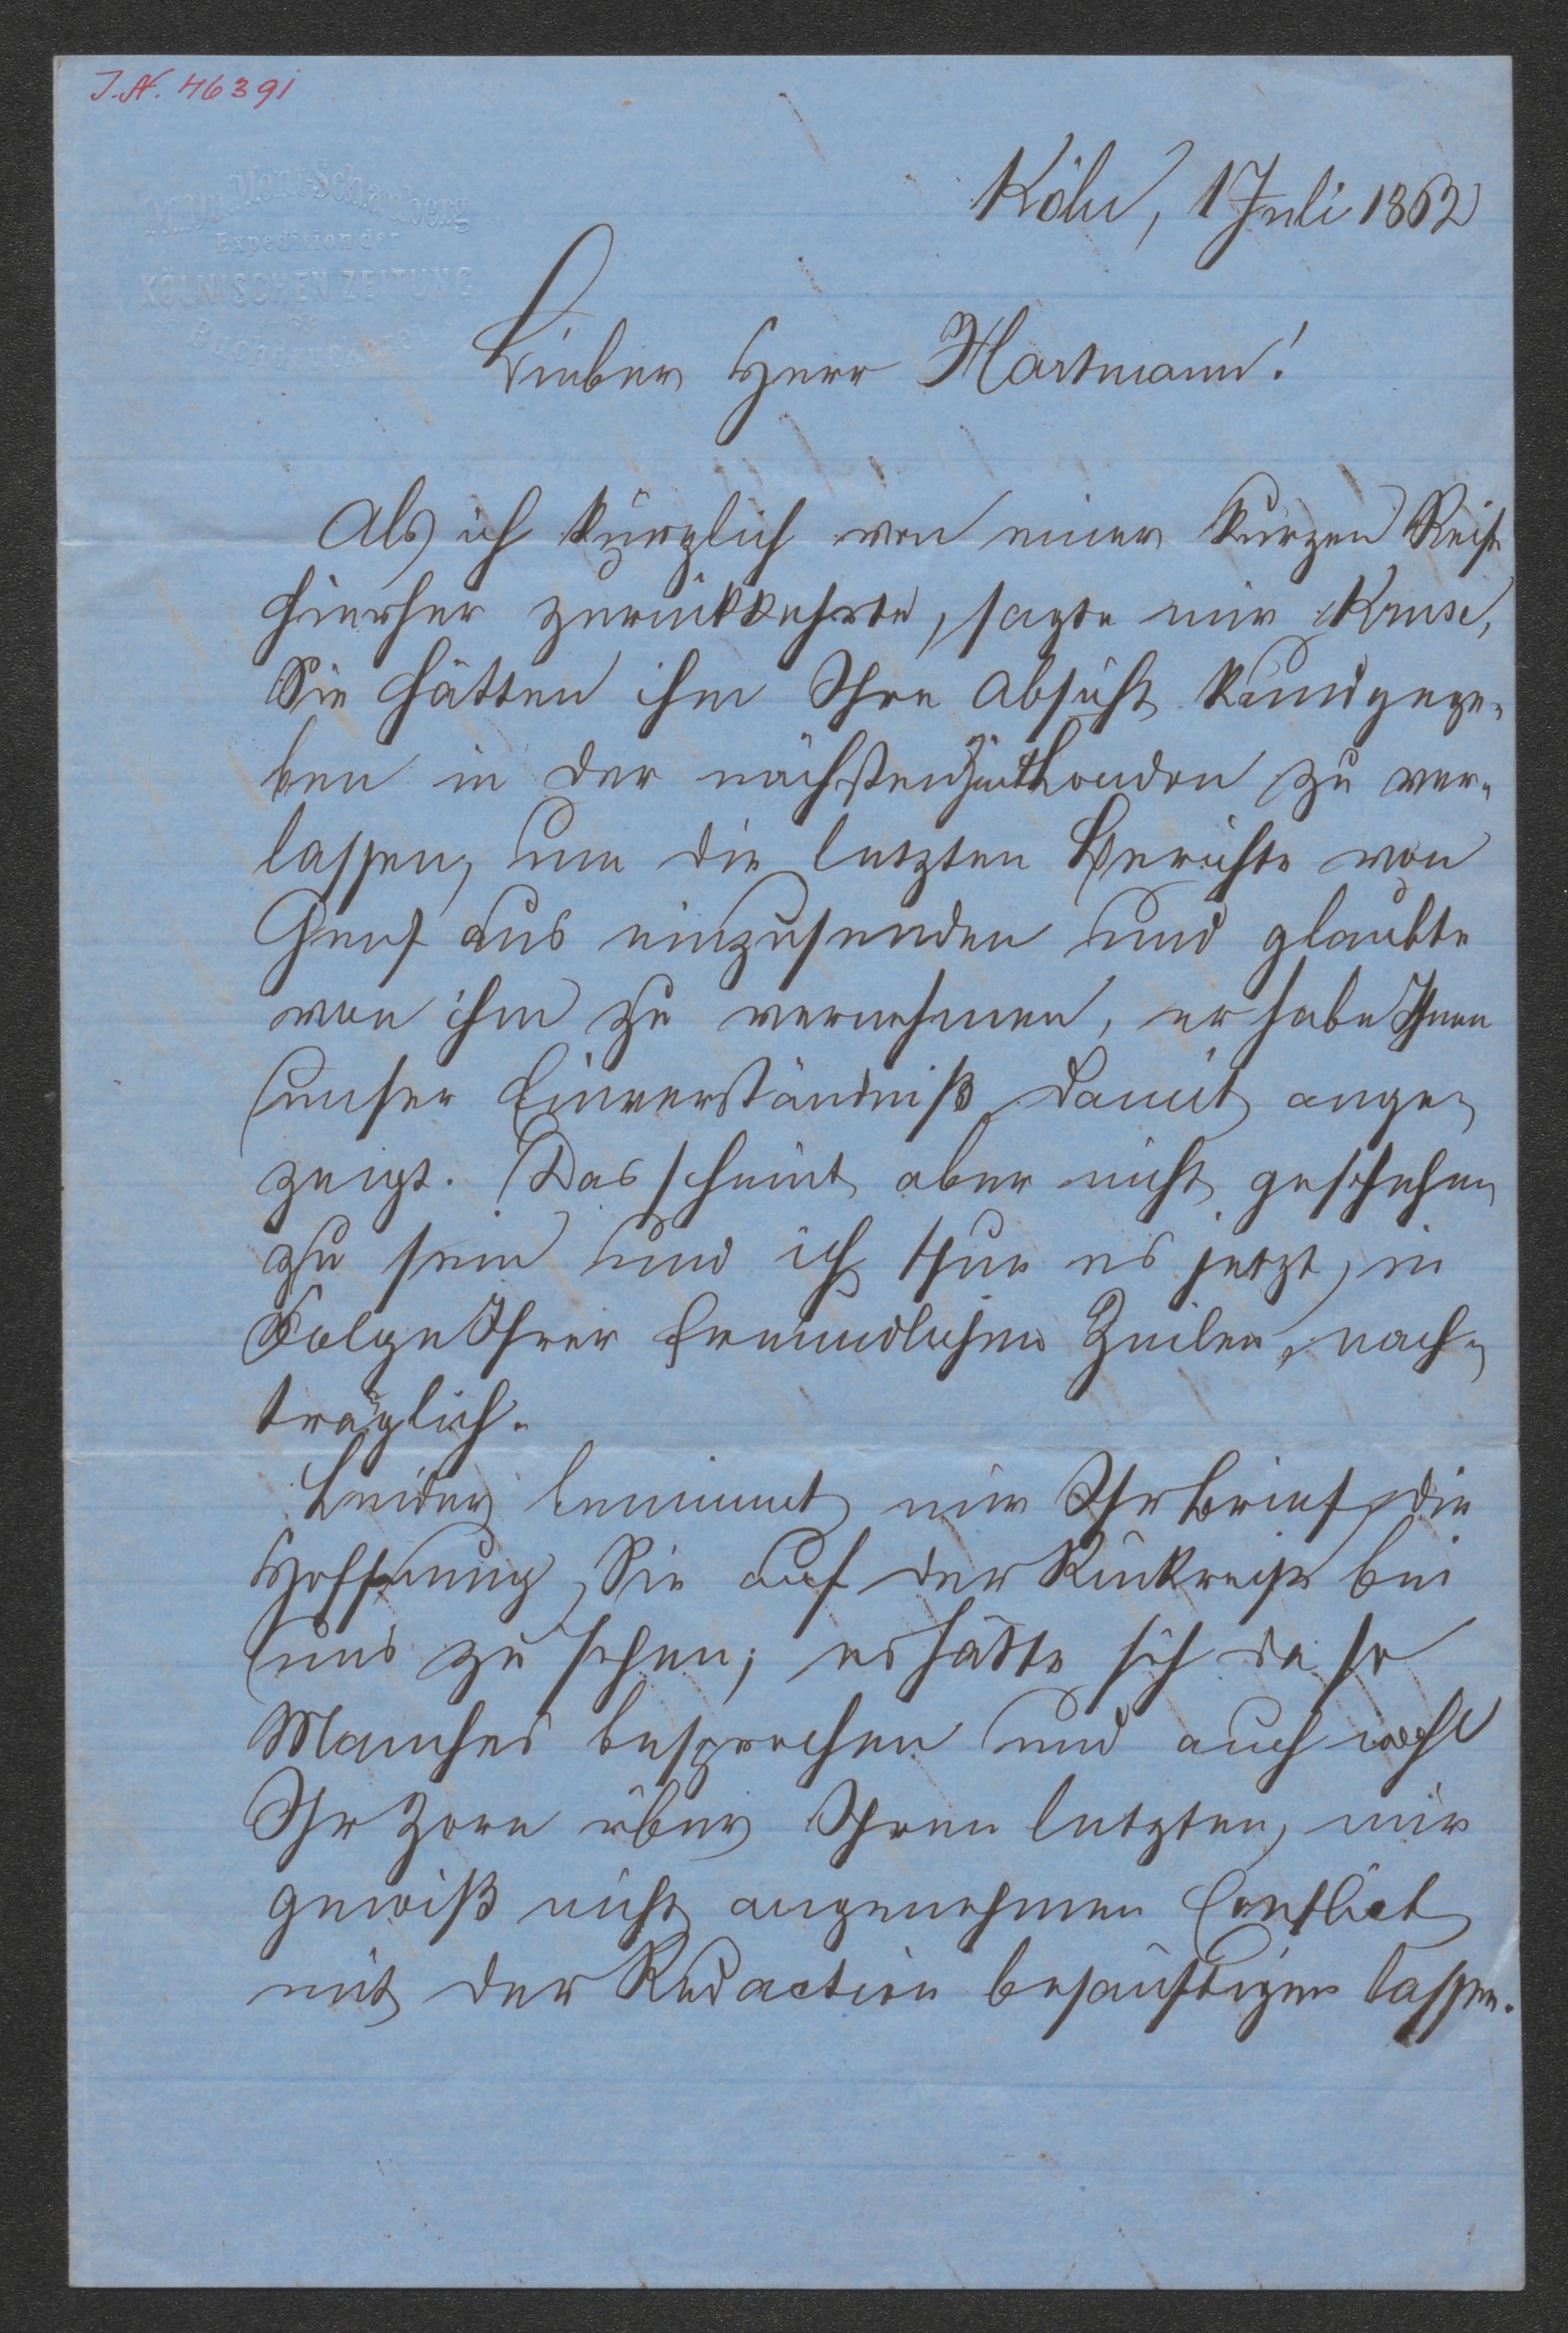 J.N. 46391
M. DuMont-Schauberg
Expedition der
KÖLNISCHEN ZEITUNG
Buchdruckerei
Köln, 1 Juli 1862
Lieber Herr Hartmann!
Als ich kürzlich von einer kurzen Reise
hierher zurückkehrte, sagte mir Kruse,
Sie hätten ihm Ihre Absicht kundgege-
ben in der nächsten Zeit London zu ver-
lassen, um die letzten Berichte von
Genf aus einzusenden und glaubte
von ihm zu vernehmen, er habe Ihnen
unser Einverständniß damit ange-
zeigt. Das scheint aber nicht geschehen
zu sein und ich thue es jetzt, in
Folge Ihrer freundlichen Zeilen, nach-
träglich.
Leider benimmt mir Ihr Brief die
Hoffnung, Sie auf der Rückreise bei
uns zu sehen; es hätte sich da so
Manches besprechen und auch wohl
Ihr Zorn über Ihren letzten, mir
gewiß nicht angenehmen Conflict
mit der Redaction besänftigen lassen.